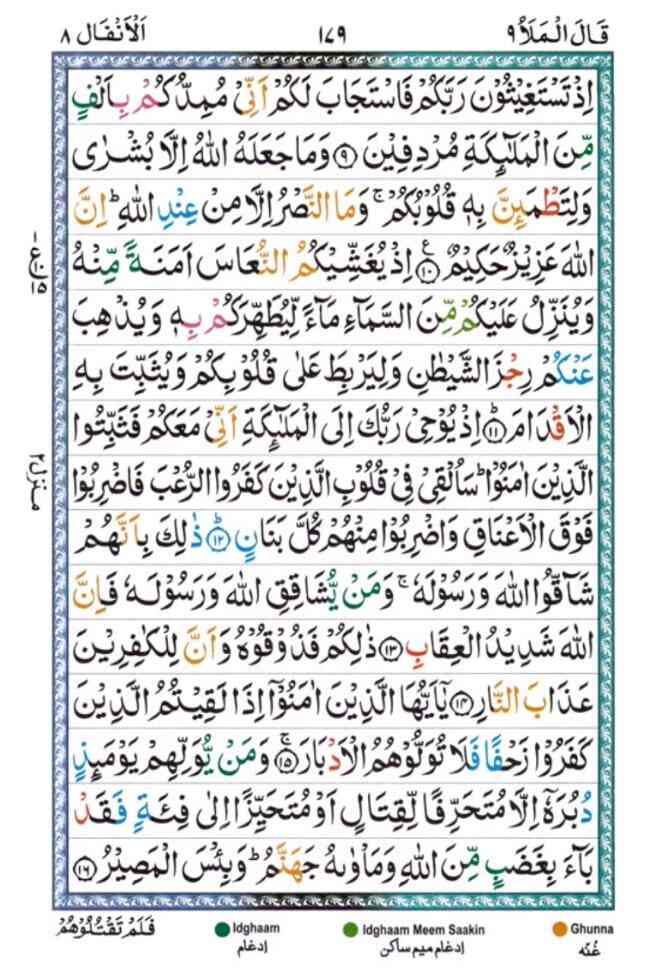 قَالَ الْمَلَاُ ٩
١٧٩
اَلْاَنْفَال ٨
اِذْ تَسْتَغِيْثُوْنَ رَبَّكُمْ فَاسْتَجَابَ لَكُمْ اَنِّيْ مُمِدُّكُمْ بِاَلْفٍ
مِّنَ الْمَلٰٓئِكَةِ مُرْدِفِيْنَ ۹ وَمَا جَعَلَهُ اللّٰهُ اِلَّا بُشْرٰى
وَلِتَطْمَئِنَّ بِهٖ قُلُوْبُكُمْ ۚ وَمَا النَّصْرُ اِلَّا مِنْ عِنْدِ اللّٰهِ ؕ اِنَّ
اللّٰهَ عَزِيْزٌ حَكِيْمٌ ۱۰ ع اِذْ يُغَشِّيْكُمُ النُّعَاسَ اَمَنَةً مِّنْهُ
وَيُنَزِّلُ عَلَيْكُمْ مِّنَ السَّمَآءِ مَآءً لِّيُطَهِّرَكُمْ بِهٖ وَيُذْهِبَ
عَنْكُمْ رِجْزَ الشَّيْطٰنِ وَلِيَرْبِطَ عَلٰى قُلُوْبِكُمْ وَيُثَبِّتَ بِهِ
الْاَقْدَامَ ۱۱ اِذْ يُوْحِيْ رَبُّكَ اِلَى الْمَلٰٓئِكَةِ اَنِّيْ مَعَكُمْ فَثَبِّتُوا
الَّذِيْنَ اٰمَنُوْا ؕ سَاُلْقِيْ فِيْ قُلُوْبِ الَّذِيْنَ كَفَرُوا الرُّعْبَ فَاضْرِبُوْا
فَوْقَ الْاَعْنَاقِ وَاضْرِبُوْا مِنْهُمْ كُلَّ بَنَانٍ ۱۲ ذٰلِكَ بِاَنَّهُمْ
شَآقُّوا اللّٰهَ وَرَسُوْلَهٗ ۚ وَمَنْ يُّشَاقِقِ اللّٰهَ وَرَسُوْلَهٗ فَاِنَّ
اللّٰهَ شَدِيْدُ الْعِقَابِ ۱۳ ذٰلِكُمْ فَذُوْقُوْهُ وَاَنَّ لِلْكٰفِرِيْنَ
عَذَابَ النَّارِ ۱۴ يٰٓاَيُّهَا الَّذِيْنَ اٰمَنُوْٓا اِذَا لَقِيْتُمُ الَّذِيْنَ
كَفَرُوْا زَحْفًا فَلَا تُوَلُّوْهُمُ الْاَدْبَارَ ۚ ۱۵ وَمَنْ يُّوَلِّهِمْ يَوْمَئِذٍ
دُبُرَهٗٓ اِلَّا مُتَحَرِّفًا لِّقِتَالٍ اَوْ مُتَحَيِّزًا اِلٰى فِئَةٍ فَقَدْ
بَآءَ بِغَضَبٍ مِّنَ اللّٰهِ وَمَاْوٰىهُ جَهَنَّمُ ؕ وَبِئْسَ الْمَصِيْرُ ۱۶
منزل ٢
فَلَمْ تَقْتُلُوْهُمْ
Idghaam
ادغام
Idghaam Meem Saakin
ادغام میم ساکن
Ghunna
غُنّه